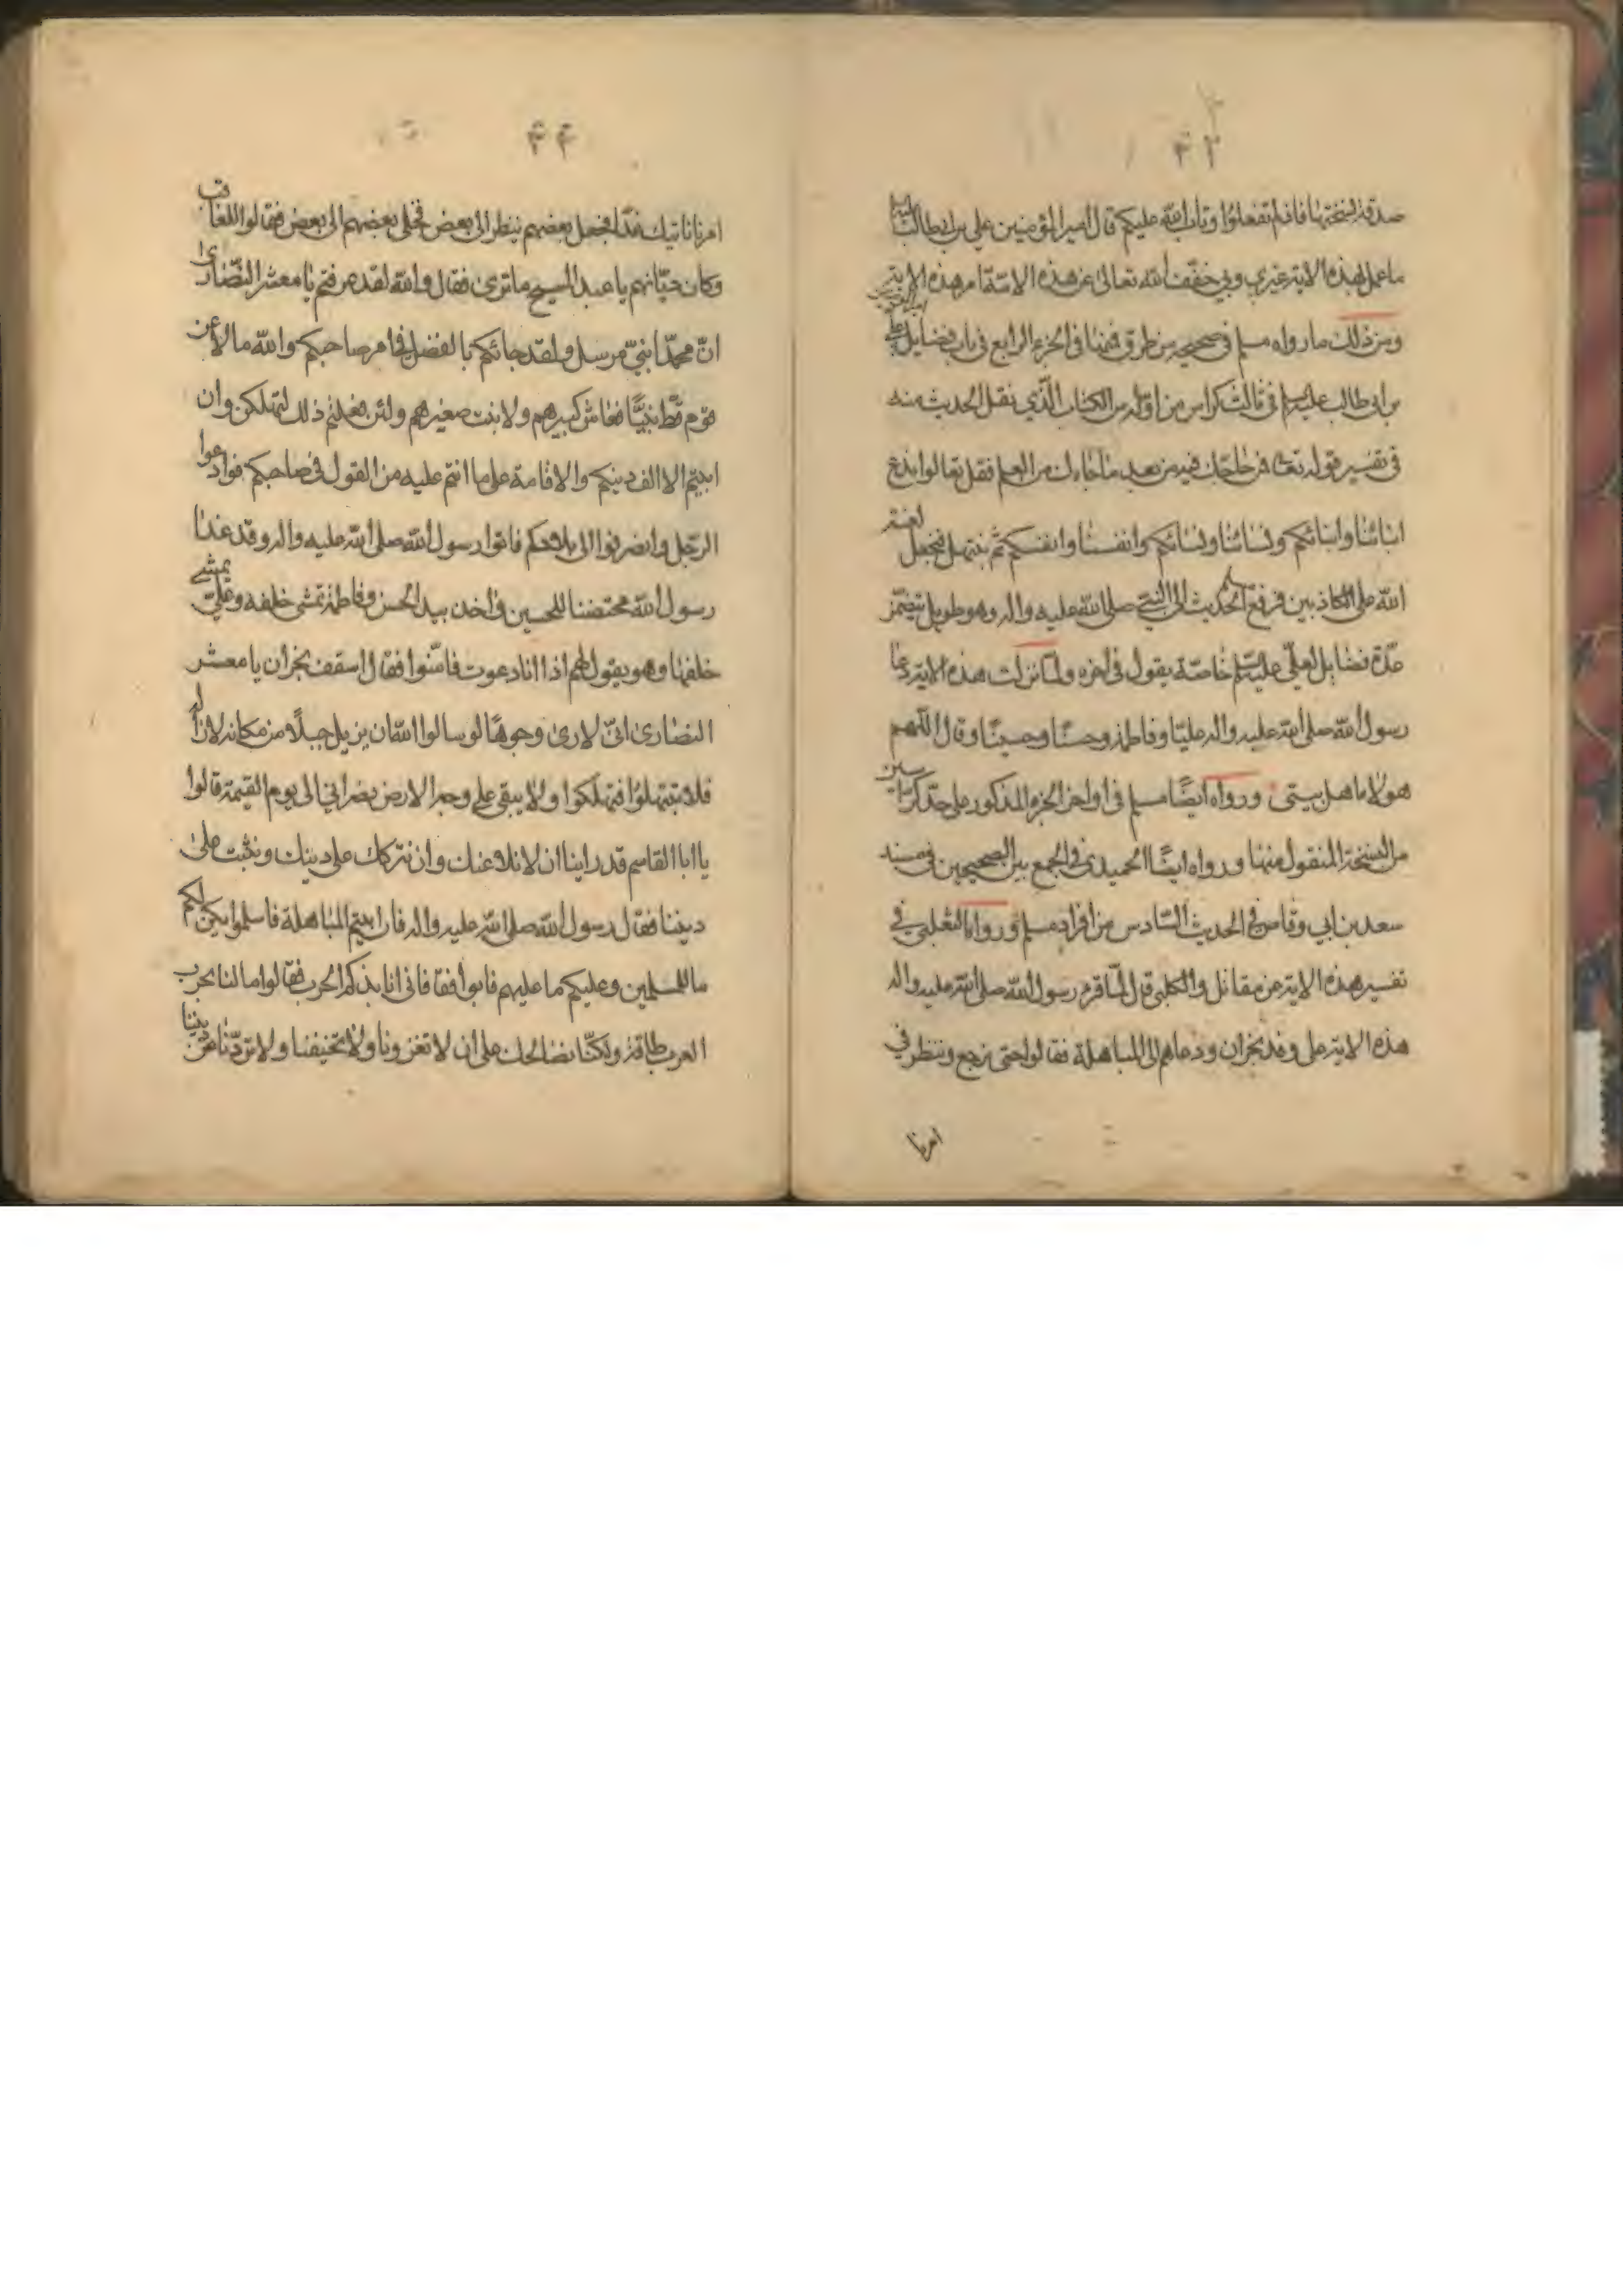 ۴۳
صدقة نسختها فاذلم تفعلوا وتاب الله عليكم قال امير المؤمنين علي بن ابيطالب عليه
ما عمل بهذه الاية غيري وبي خفف الله تعالى عن هذه الامة امر هذه الاية
ومن ذلك ما رواه مسلم في صحيحه من طرق فمنها في الجزء الرابع في باب فضايل
بن ابي طالب عليه السلام في ثالث كراس من اوله من الكتاب الذي نقل الحديث منه
في تفسير قوله تعالى فمن حاجك فيه من بعد ما جاءك من العلم فقل تعالوا ندع
ابنائنا وابنائكم ونسائنا ونسائكم وانفسنا وانفسكم ثم نبتهل فنجعل لعنة
الله على الكاذبين فرفع مسلم الحديث الى النبي صلى الله عليه واله وهو طويل يتضمن
عدة فضايل لعلي عليه السلام خاصة يقول في اخره ولما نزلت هذه الاية دعا
رسول الله صلى الله عليه واله عليا وفاطمة وحسنا وحسينا وقال اللهم
هولاء اهل بيتي ورواه ايضا مسلم في اواخر الجزء المذكور على حد كراسين
من النسخة المنقول منها ورواه ايضا الحميدي في الجمع بين الصحيحين في مسند
سعد بن ابي وقاص في الحديث السادس من افراد مسلم ورواه الثعلبي في
تفسير هذه الاية عن مقاتل والكلبي قال لما قرء رسول الله صلى الله عليه واله
هذه الاية على وفد نجران ودعاهم الى المباهلة فقالوا حتى نرجع وننظر في
امرنا
۴۴
امرنا ناتيك غدا فجعل بعضهم ينظر الى بعض فخلى بعضهم الى بعض فقالوا للعاقب
وكان ديانهم يا عبد المسيح ما ترى فقال والله لقد عرفتم يا معشر النصارى
ان محمدا نبي مرسل ولقد جائكم بالفضل في امر صاحبكم والله ما لاعن
قوم قط نبيا فعاش كبيرهم ولا نبت صغيرهم ولئن فعلتم ذلك لتهلكن وان
ابيتم الا الف دينكم والاقامة على ما انتم عليه من القول في صاحبكم فوادعوا
الرجل وانصرفوا الى بلادكم فاتوا رسول الله صلى الله عليه واله وقد غدا
رسول الله محتضنا للحسين واخذ بيد الحسن وفاطمة تمشي خلفه وعلي يمشي
خلفها وهو يقول لهم اذا انا دعوت فامنوا فقال اسقف نجران يا معشر
النصارى اني لارى وجوها لو سالوا الله ان يزيل جبلا من مكانه لازاله
فلا تبتهلوا فتهلكوا ولا يبقى على وجه الارض نصراني الى يوم القيمة قالوا
يا ابا القاسم قد راينا ان لا نلاعنك وان نتركك على دينك ونثبت على
ديننا فقال رسول الله صلى الله عليه واله فان ابيتم المباهلة فاسلموا يكن لكم
ما للمسلمين وعليكم ما عليهم فابوا فقال فاني انابذكم الحرب فقالوا ما لنا بحرب
العرب طاقة ولكنا نصالحك على ان لا تغزونا ولا تخيفنا ولا تردنا عن ديننا